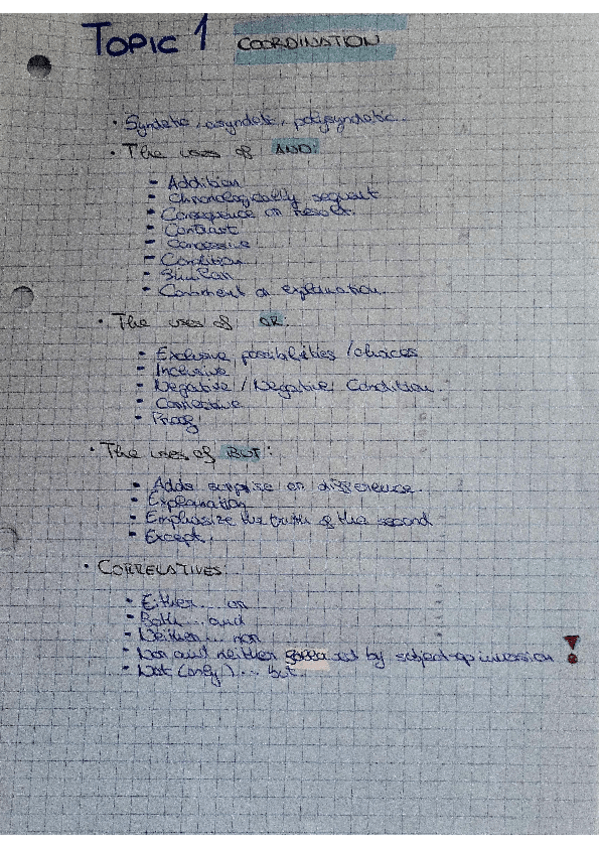 TOPIC 1 COORDINATION
• Syndetic, asyndetic, polysyndetic.
• The uses of AND:
- Addition
- Chronologically sequent
- Consequence or result.
- Contrast
- Concessive
- Condition
- Similar
- Comment or explanation.
• The uses of OR:
- Exclusive possibilities / choices
- Inclusive
- Negative / Negative Condition.
- Corrective
- Proof
• The uses of BUT:
- Adds surprise or difference.
- Explanation
- Emphasize the truth of the second
- Except.
• CORRELATIVES:
- Either... or
- Both... and
- Neither... nor
- Nor and neither by subject-op inversion !
- Not (only)... but.